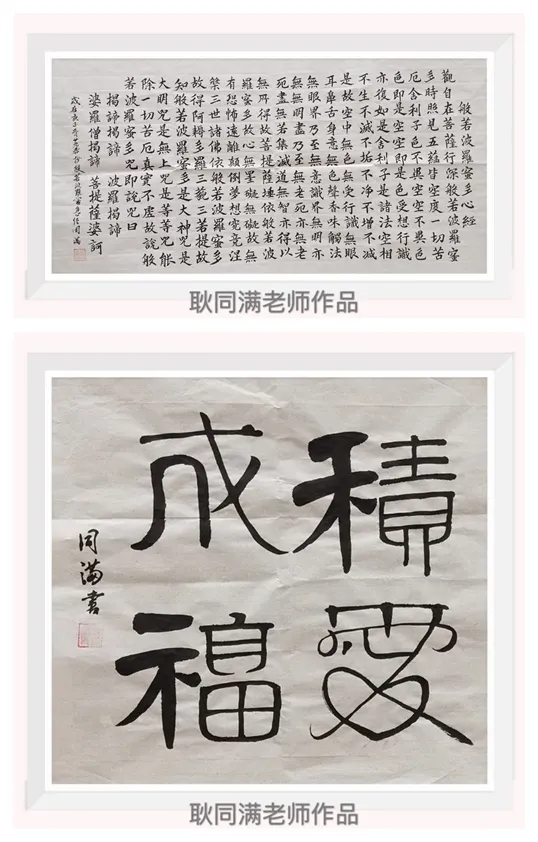 般若波羅蜜多心經
觀自在菩薩行深般若波羅蜜
多時照見五蘊皆空度一切苦
厄舍利子色不異空空不異色
色即是空空即是色受想行識
亦復如是舍利子是諸法空相
不生不滅不垢不净不增不減
是故空中無色無受行識無眼
耳鼻舌身意無色聲香味觸法
無眼界乃至無意識界無明亦
無無明盡乃至無老死亦無老
死盡無苦集滅道無智亦得以
無所得故菩提薩埵依般若波
羅蜜多故心無罣礙無礙故無
有恐怖遠離顛倒夢想究竟涅
槃三世諸佛依般若波羅蜜多
故得阿耨多羅三藐三菩提故
知般若波羅蜜多是大神咒是
大明咒是無上咒是等等咒能
除一切苦厄真實不虛故說般
若波羅蜜多咒即說咒曰
揭諦揭諦 波羅揭諦
婆羅僧揭諦 菩提薩婆訶
歲在庚子 同滿
耿同满老师作品
積愛
成福
同滿書
耿同满老师作品